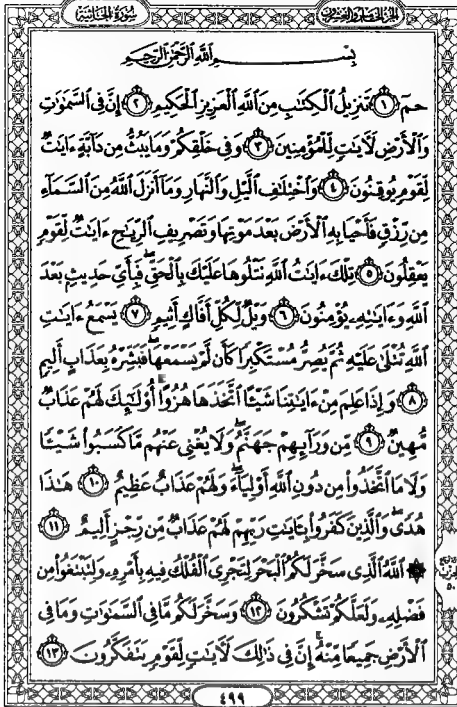 سُورَةُ الجَاثِيَةِ
الجُزءُ الخَامِسُ وَالعِشْرُونَ
بِسْمِ ٱللَّهِ ٱلرَّحْمَٰنِ ٱلرَّحِيمِ
حمٓ ١ تَنزِيلُ ٱلْكِتَٰبِ مِنَ ٱللَّهِ ٱلْعَزِيزِ ٱلْحَكِيمِ ٢ إِنَّ فِى ٱلسَّمَٰوَٰتِ
وَٱلْأَرْضِ لَءَايَٰتٍ لِّلْمُؤْمِنِينَ ٣ وَفِى خَلْقِكُمْ وَمَا يَبُثُّ مِن دَآبَّةٍ ءَايَٰتٌ
لِّقَوْمٍ يُوقِنُونَ ٤ وَٱخْتِلَٰفِ ٱلَّيْلِ وَٱلنَّهَارِ وَمَآ أَنزَلَ ٱللَّهُ مِنَ ٱلسَّمَآءِ
مِن رِّزْقٍ فَأَحْيَا بِهِ ٱلْأَرْضَ بَعْدَ مَوْتِهَا وَتَصْرِيفِ ٱلرِّيَٰحِ ءَايَٰتٌ لِّقَوْمٍ
يَعْقِلُونَ ٥ تِلْكَ ءَايَٰتُ ٱللَّهِ نَتْلُوهَا عَلَيْكَ بِٱلْحَقِّ ۖ فَبِأَىِّ حَدِيثٍۭ بَعْدَ
ٱللَّهِ وَءَايَٰتِهِۦ يُؤْمِنُونَ ٦ وَيْلٌ لِّكُلِّ أَفَّاكٍ أَثِيمٍ ٧ يَسْمَعُ ءَايَٰتِ
ٱللَّهِ تُتْلَىٰ عَلَيْهِ ثُمَّ يُصِرُّ مُسْتَكْبِرًا كَأَن لَّمْ يَسْمَعْهَا ۖ فَبَشِّرْهُ بِعَذَابٍ أَلِيمٍ
٨ وَإِذَا عَلِمَ مِنْ ءَايَٰتِنَا شَيْـًٔا ٱتَّخَذَهَا هُزُوًا ۚ أُو۟لَٰٓئِكَ لَهُمْ عَذَابٌ
مُّهِينٌ ٩ مِّن وَرَآئِهِمْ جَهَنَّمُ ۖ وَلَا يُغْنِى عَنْهُم مَّا كَسَبُوا۟ شَيْـًٔا
وَلَا مَا ٱتَّخَذُوا۟ مِن دُونِ ٱللَّهِ أَوْلِيَآءَ ۖ وَلَهُمْ عَذَابٌ عَظِيمٌ ١٠ هَٰذَا
هُدًى ۖ وَٱلَّذِينَ كَفَرُوا۟ بِـَٔايَٰتِ رَبِّهِمْ لَهُمْ عَذَابٌ مِّن رِّجْزٍ أَلِيمٌ ١١
۞ ٱللَّهُ ٱلَّذِى سَخَّرَ لَكُمُ ٱلْبَحْرَ لِتَجْرِىَ ٱلْفُلْكُ فِيهِ بِأَمْرِهِۦ وَلِتَبْتَغُوا۟ مِن
فَضْلِهِۦ وَلَعَلَّكُمْ تَشْكُرُونَ ١٢ وَسَخَّرَ لَكُم مَّا فِى ٱلسَّمَٰوَٰتِ وَمَا فِى
ٱلْأَرْضِ جَمِيعًا مِّنْهُ ۚ إِنَّ فِى ذَٰلِكَ لَءَايَٰتٍ لِّقَوْمٍ يَتَفَكَّرُونَ ١٣
الحزب
٥٠
٤٩٩